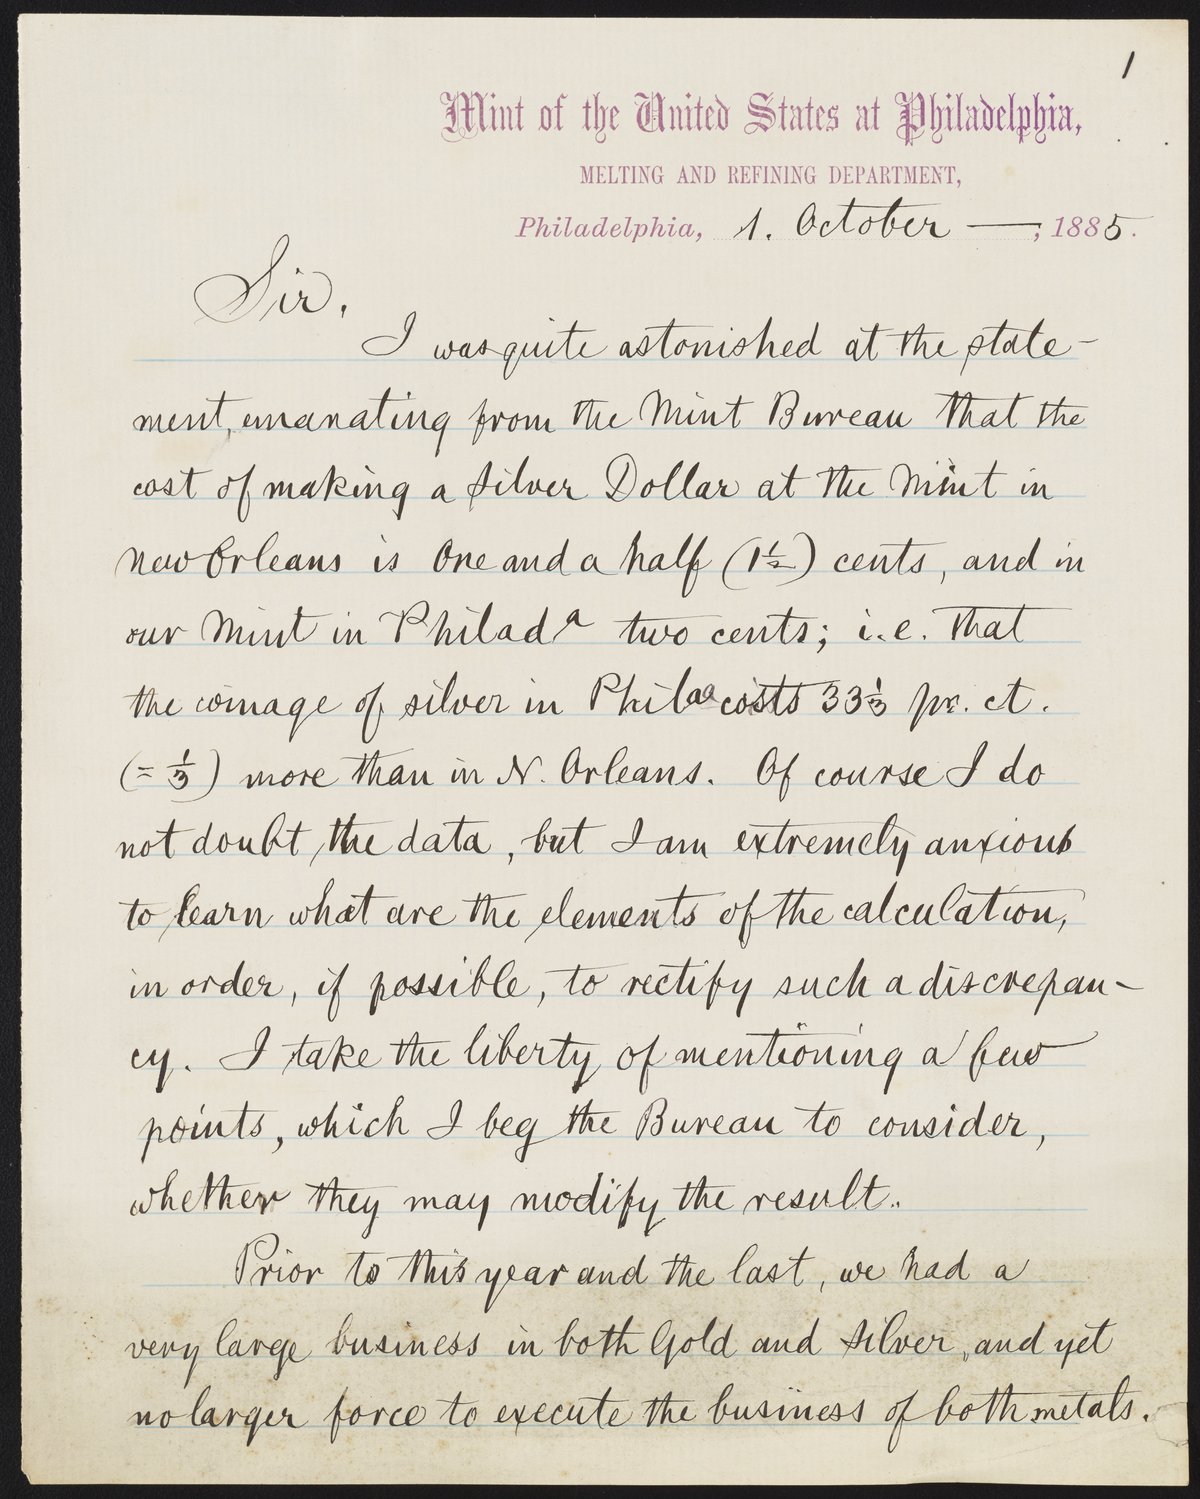 1
Mint of the United States at Philadelphia,
MELTING AND REFINING DEPARTMENT,
Philadelphia, 1. October —, 1885.
Sir,
I was quite astonished at the state-
ment, emanating from the Mint Bureau that the
cost of making a Silver Dollar at the Mint in
New Orleans is One and a half (1½) cents, and in
our Mint in Philadᵃ two cents; i.e. that
the coinage of silver in Philaᵃ costs 33⅓ pr. ct.
(= ⅓) more than in N. Orleans. Of course I do
not doubt the data, but I am extremely anxious
to learn what are the elements of the calculation,
in order, if possible, to rectify such a discrepan-
cy. I take the liberty of mentioning a few
points, which I beg the Bureau to consider,
whether they may modify the result.
Prior to this year and the last, we had a
very large business in both Gold and Silver, and yet
no larger force to execute the business of both metals.